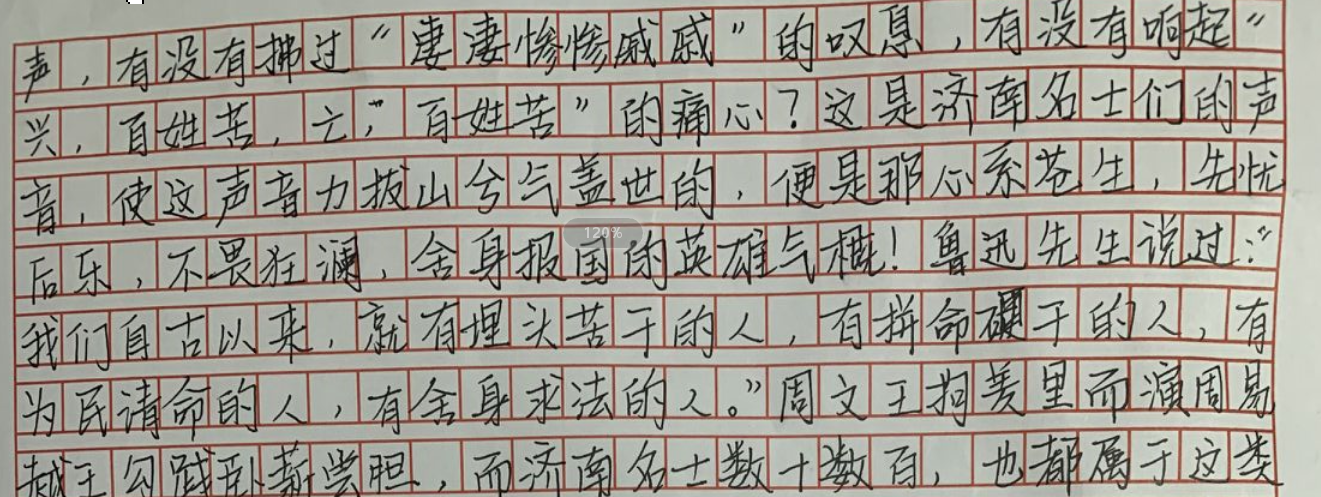 声，有没有拂过“凄凄惨惨戚戚”的叹息，有没有响起“
兴，百姓苦，亡，“百姓苦”的痛心？这是济南名士们的声
音，使这声音力拔山兮气盖世的，便是那心系苍生，先忧
后乐，不畏狂澜，舍身报国的英雄气概！鲁迅先生说过：“
120%
我们自古以来，就有埋头苦干的人，有拼命硬干的人，有
为民请命的人，有舍身求法的人。”周文王拘羑里而演周易
越王勾践卧薪尝胆，而济南名士数十数百，也都属于这类